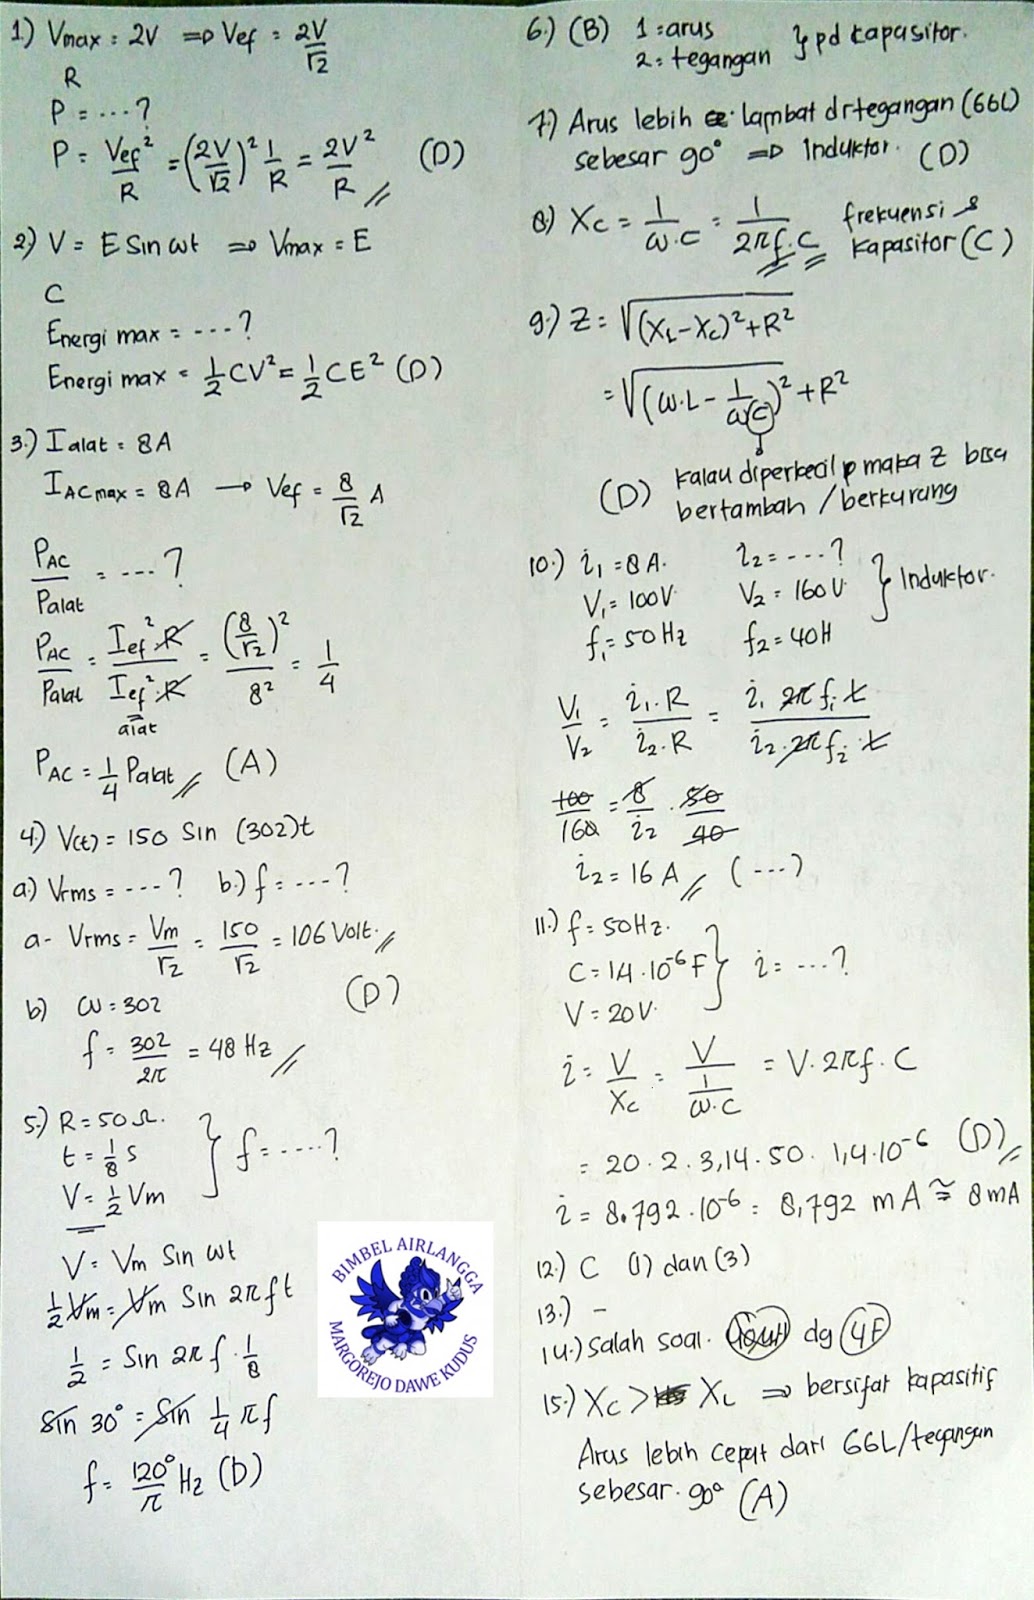 1) Vmax = 2V ⇒ Vef = 2V/√2
R
P = ....?
P = Vef²/R = (2V/√2)² 1/R = 2V²/R (D)
2) V = E Sin ωt ⇒ Vmax = E
C
Energi max = ....?
Energi max = 1/2 CV² = 1/2 CE² (D)
3.) I alat = 8A
I AC max = 8A → Vef = 8/√2 A
PAC/Palat = ....?
PAC/Palat = Ief² R/Ief² R = (8/√2)²/8² = 1/4
alat
PAC = 1/4 Palat (A)
4.) V(t) = 150 Sin (302)t
a.) Vrms = ....? b.) f = ....?
a- Vrms = Vm/√2 = 150/√2 = 106 Volt.
(D)
b) ω = 302
f = 302/2π = 48 Hz
5.) R = 50 Ω.
t = 1/8 s } f = ....?
V = 1/2 Vm
V = Vm Sin ωt
1/2 Vm = Vm Sin 2π f t
1/2 = Sin 2π f · 1/8
Sin 30° = Sin 1/4 π f
f = 120°/π Hz (D)
BIMBEL AIRLANGGA
MARGOREJO DAWE KUDUS
6.) (B) 1 = arus
2 = tegangan } pd kapasitor.
7.) Arus lebih lambat dr tegangan (GGL)
sebesar 90° ⇒ Induktor. (D)
8) Xc = 1/ω.C = 1/2πf.C frekuensi &
kapasitor (C)
9.) Z = √(XL-Xc)²+R²
= √(ω.L - 1/ωC)² + R²
(D) kalau diperkecil maka Z bisa
bertambah / berkurang
10.) i1 = 8 A. i2 = ....?
V1 = 100V V2 = 160V } Induktor.
f1 = 50 Hz f2 = 40H
V1/V2 = i1.R/i2.R = i1 2π f1 L/i2.2π f2.L
100/160 = 8/i2 · 50/40
i2 = 16 A (....?)
11.) f = 50Hz.
C = 1,4.10⁻⁶ F } i = ....?
V = 20V.
i = V/Xc = V/(1/ω.C) = V. 2πf. C
= 20. 2. 3,14. 50. 1,4.10⁻⁶ (D)
i = 8.792.10⁻⁶ = 8,792 mA ≅ 8 mA
12.) C (1) dan (3)
13.) -
14.) Salah soal. dg 4F
15.) Xc > XL ⇒ bersifat kapasitif
Arus lebih cepat dari GGL/tegangan
sebesar. 90° (A)